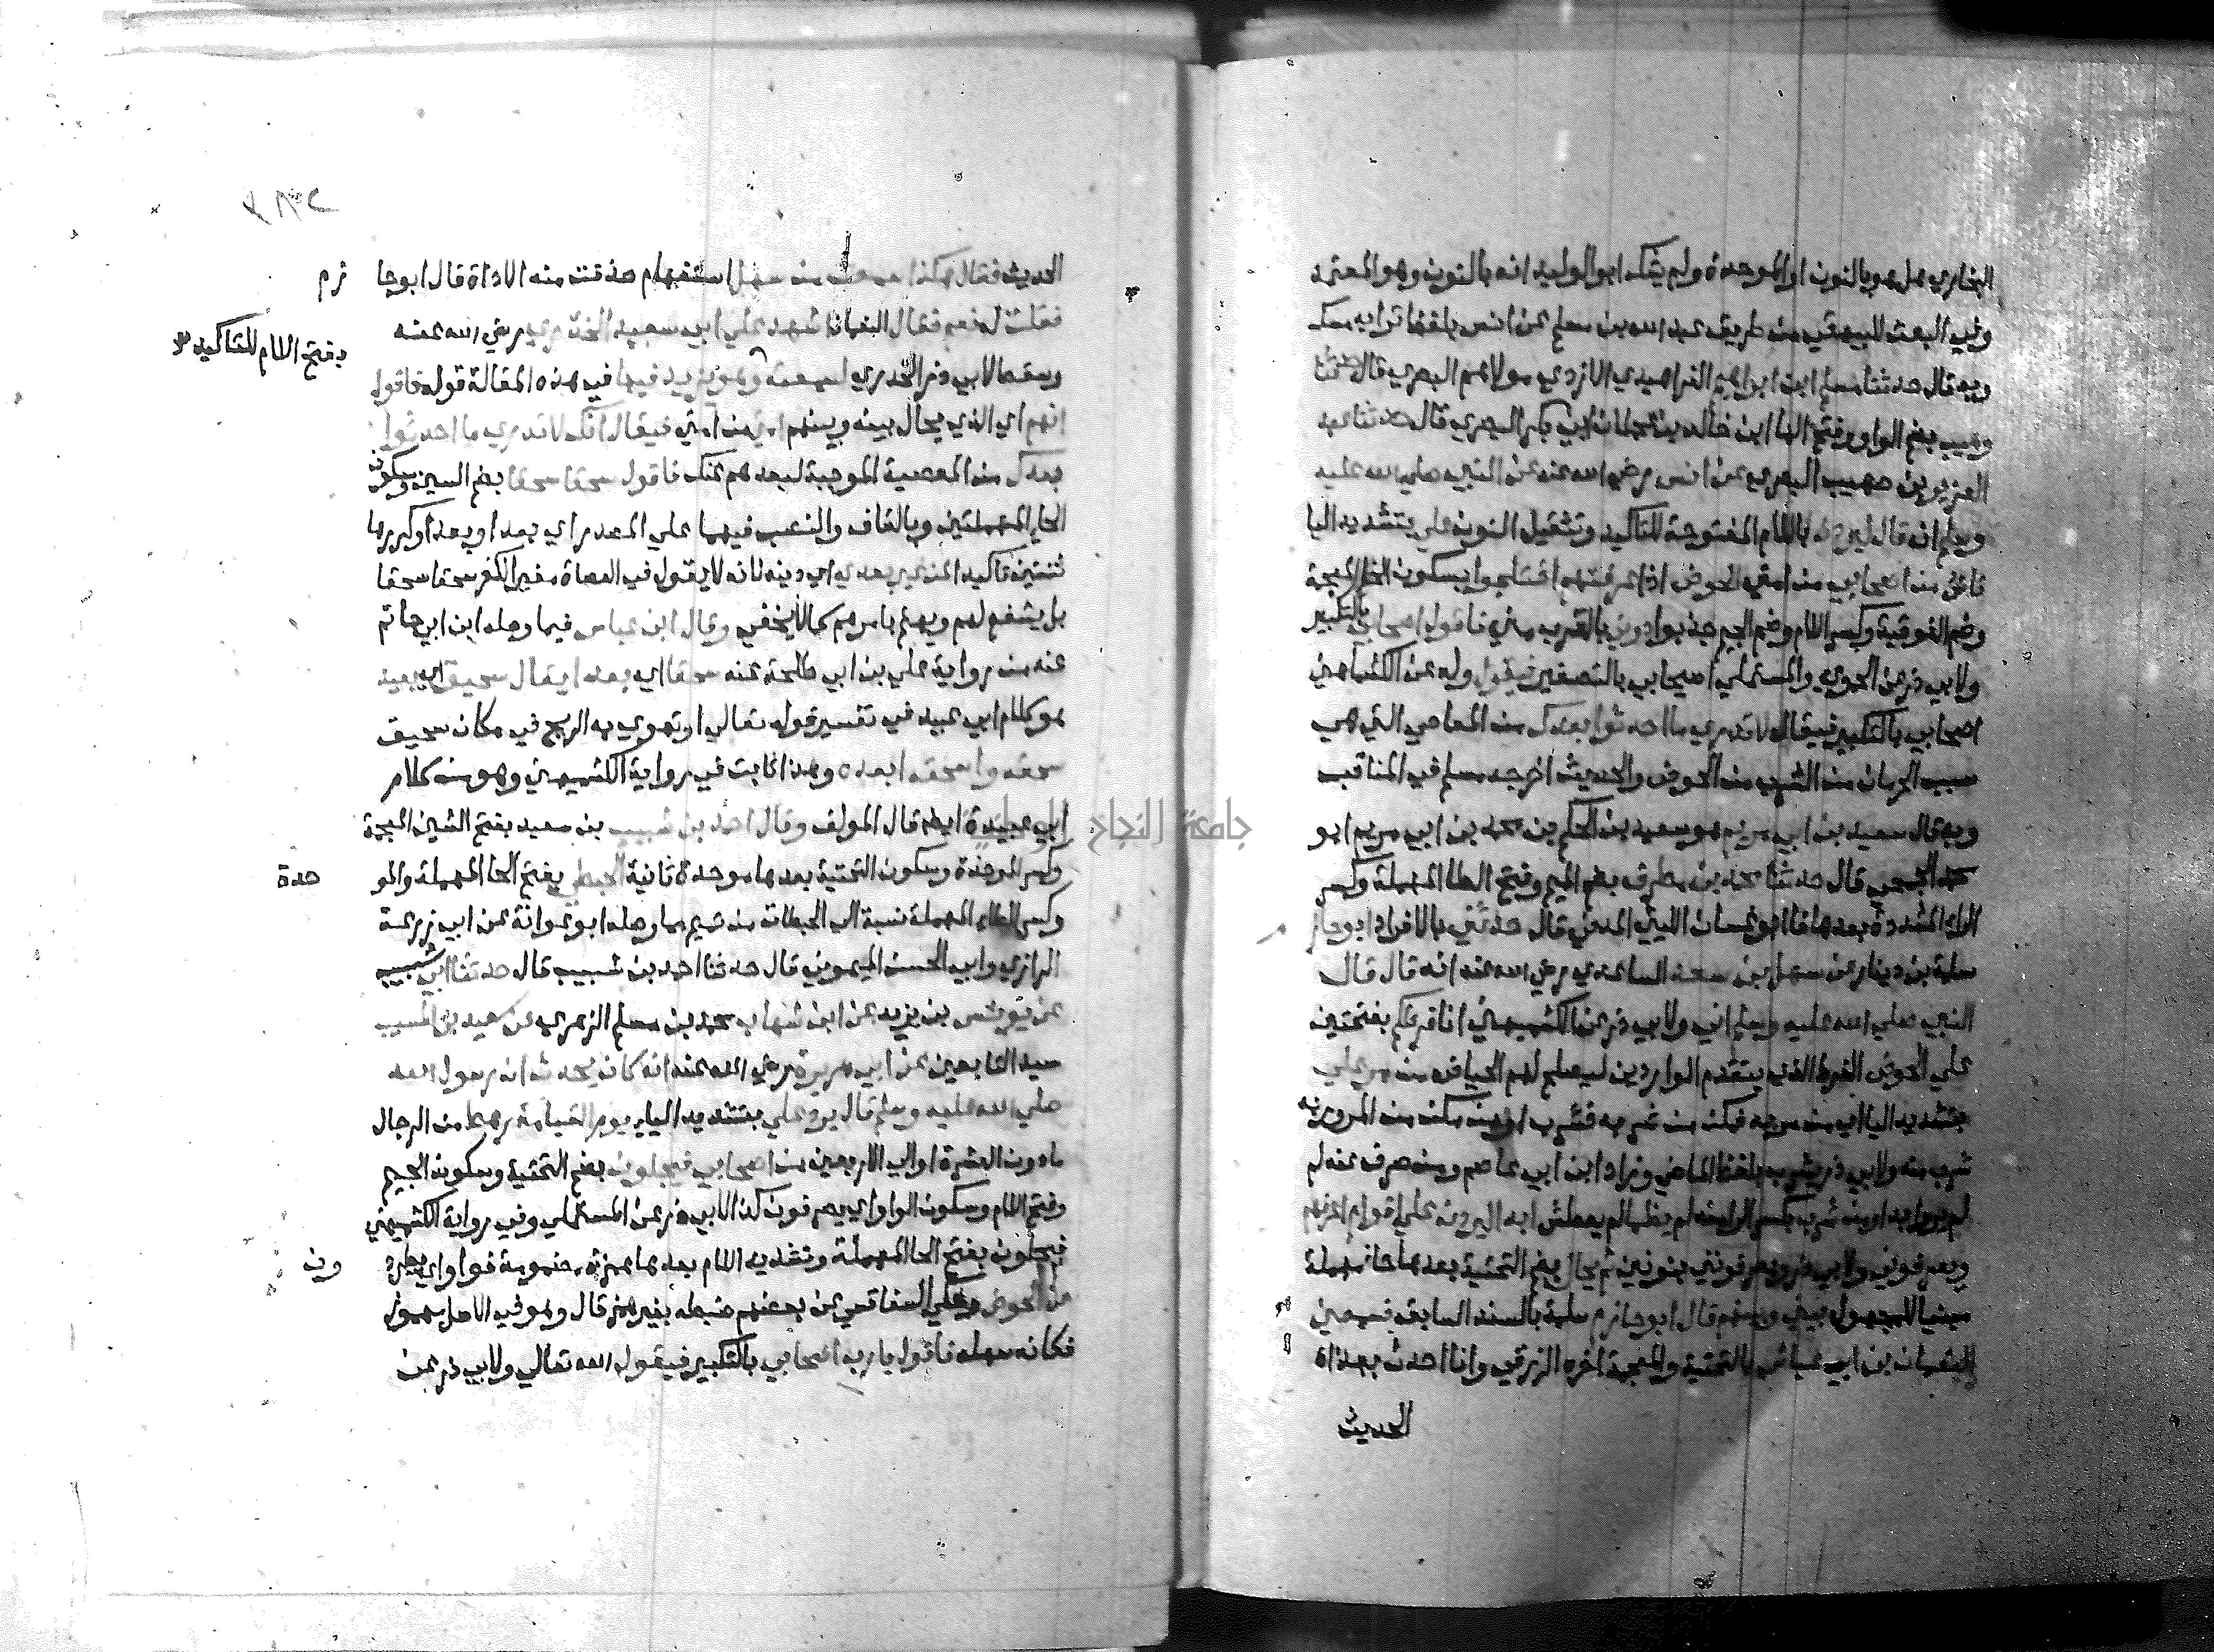 البخاري هل هو بالنون او الموحدة ولم يشك ابو الوليد انه بالنون وهو المعتمد
وفي البعث للبيهقي من طريق عبد الله بن مسلم عن انس بلفظ ترابه مسك
وبه قال حدثنا مسلم ابن ابراهيم الفراهيدي الازدي مولاهم البصري قال حدثنا
وهيب بضم الواو وفتح الها ابن خالد بن عجلان ابي بكر البصري قال حدثنا عبد
العزيز بن صهيب البصري عن انس رضي الله عنه عن النبي صلي الله عليه
وسلم انه قال ليردن باللام المفتوحة للتاكيد وتثقيل النون علي بتشديد اليا
ناس من اصحابي من امتي الحوض اذا عرفتهم اختلجوا بسكون الخا المعجمة
وضم الفوقية وكسر اللام وضم الجيم جذبوا دوني بالقرب مني فاقول اصحابي بالتكبير
ولابي ذر عن الحموي والمستملي اصيحابي بالتصغير فيقول وله عن الكشميهني
اصحابي بالتكبير فيقال لا تدري ما احدثوا بعدك من المعاصي التي هي
سبب الحرمان من الشرب من الحوض والحديث اخرجه مسلم في المناقب
وبه قال سعيد بن ابي مريم هو سعيد بن الحكم بن محمد بن ابي مريم ابو
محمد الجمحي قال حدثنا محمد بن مطرف بضم الميم وفتح الطا المهملة وكسر
الراء المشددة بعدها فا ابو غسان الليثي المدني قال حدثني بالافراد ابو حازم
سلمة بن دينار عن سهل بن سعد الساعدي رضي الله عنه انه قال قال
النبي صلي الله عليه وسلم اني ولابي ذر عن الكشميهني انا فرطكم بفتحتين
علي الحوض الفرط الذي يتقدم الواردين ليصلح لهم الحياض من مر علي
بتشديد اليا اي من مر به فمكن من شربه فشرب او من مكن من المرور به
شرب منه ولابي ذر يشرب بلفظ الماضي وزاد ابن ابي عاصم ومن صرف عنه لم
لم يرو ابدا ومن شرب بكسر الرا منه لم يظما لم يعطش ابدا ليردن علي اقوام اعرفهم
ويعرفوني ولابي ذر ويعرفونني بنونين ثم يحال بضم التحتية بعدها حا مهملة
مبنيا للمجهول بيني وبينهم قال ابو حازم سلمة بالسند السابق فسمعني
النعمان بن ابي عياش بالتحتية والمعجمة اخره الزرقي وانا احدث بهذا
الحديث
الحديث فقال هكذا سمعت من سهل استفهام حذفت منه الاداة قال ابو حا زم
فقلت له نعم فقال النعمان اشهد علي ابي سعيد الخدري رضي الله عنه
بفتح اللام للتاكيد
وسقط لابي ذر الخدري لسمعته وهو يزيد فيها في هذه المقالة قوله فاقول
انهم اي الذي يحال بينه وبينهم من امتي فيقال انك لا تدري ما احدثوا
بعدك من المعصية الموجبة لبعدهم عنك فاقول سحقا سحقا بضم السين وسكون
الحاء المهملتين وبالقاف والنصب فيهما علي المصدر اي بعدا وبعدا وكررها
ثنتين تاكيدا لمن غير بعدي اي دينه لانه لا يقول في العصاة بغير الكفر سحقا سحقا
بل يشفع لهم ويهتم بامرهم كما لا يخفي وقال ابن عباس فيما وصله ابن ابي حاتم
عنه من رواية علي بن ابي طلحة عنه سحقا اي بعدا يقال سحيق اي بعيد
هو كلام ابي عبيد في تفسير قوله تعالي او تهوي به الريح في مكان سحيق
سحقه واسحقه ابعده وهذا ثابت في رواية الكشميهني وهو من كلام
ابي عبيدة ايضا قال المولف وقال احمد بن شبيب بن سعيد بفتح الشين المعجمة
وكسر الموحدة وسكون التحتية بعدها موحدة ثانية الحبطي بفتح الحا المهملة والمو حدة
وكسر الطاء المهملة نسبة الي الحبطات من تميم مما وصله ابو عوانة عن ابي زرعة
الرازي وابي الحسن الميموني قال حدثنا احمد بن شبيب قال حدثنا ابي شبيب
عن يونس بن يزيد عن ابن شهاب محمد بن مسلم الزهري عن سعيد بن المسيب
سيد التابعين عن ابي هريرة رضي الله عنه انه كان يحدث ان رسول الله
صلي الله عليه وسلم قال يرد علي بتشديد الياء يوم القيامة رهط من الرجال
ما دون العشرة او الي الاربعين من اصحابي فيجلون بضم التحتية وسكون الجيم
وفتح اللام وسكون الواو اي يصرفون كذا لابي ذر عن المستملي وفي رواية الكشميهني
فيحلون بفتح الحا المهملة وتشديد اللام بعدها همزة مضمومة فواو اي يطرد ون
عن الحوض وحكي السفاقسي عن بعضهم ضبطه بغير همز قال وهو في الاصل مهموز
فكانه سهله فاقول يا رب اصحابي بالتكبير فيقول الله تعالي ولابي ذر عن
جامعة النجاح الوطنية